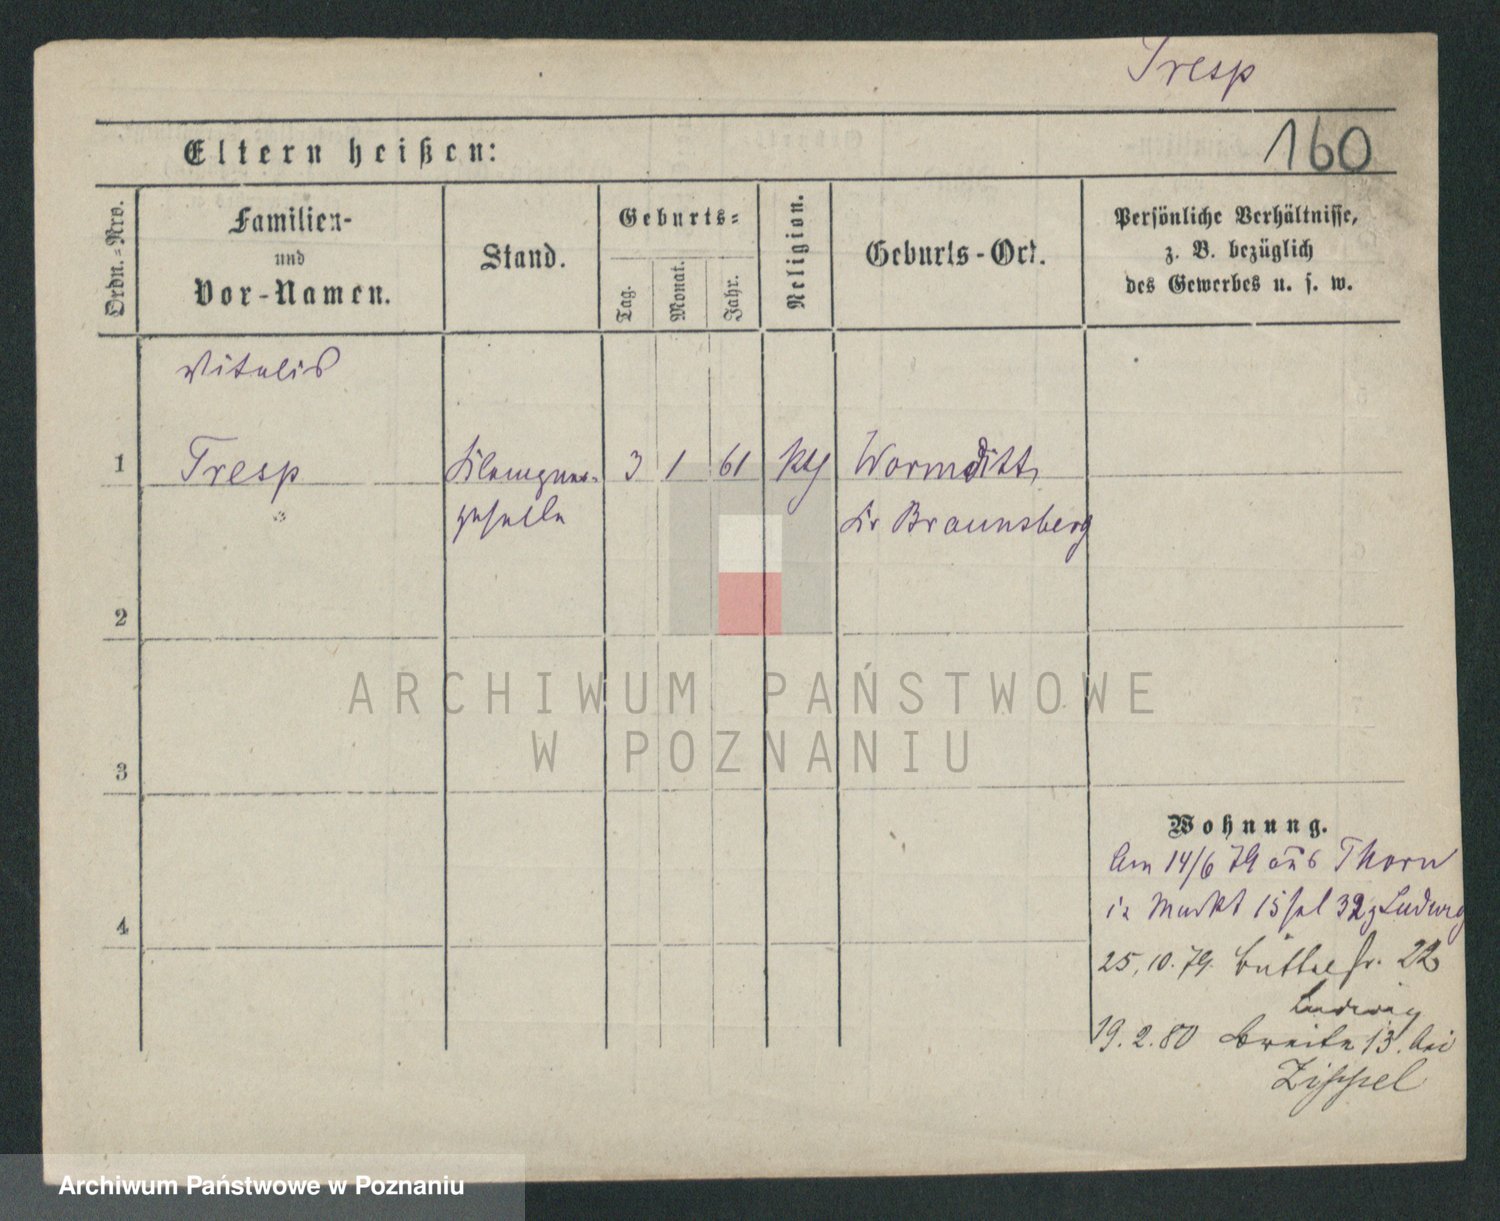 Tresp
160
Eltern heißen:
Ordn.-Nro.
Familien-
und
Vor-Namen.
Stand.
Geburts-
Tag.
Monat.
Jahr.
Religion.
Geburts-Ort.
Persönliche Verhältnisse,
z. B. bezüglich
des Gewerbes u. s. w.
Vitalis
1 Tresp Klempner- 3 1 61 kth Wormditt
geselle Kr Braunsberg
2
ARCHIWUM PAŃSTWOWE
W POZNANIU
3
Wohnung.
Am 14/6 79 aus Thorn
Markt 15 32 Ludwig
4
25.10.79. Büttelstr. 22
Ludwig
19.2.80 Breite 13. bei
Zippel
Archiwum Państwowe w Poznaniu